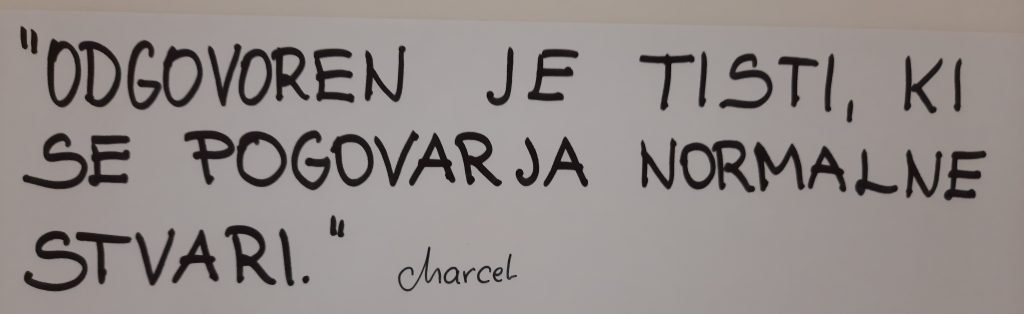 "ODGOVOREN JE TISTI, KI
SE POGOVARJA NORMALNE
STVARI." Marcel